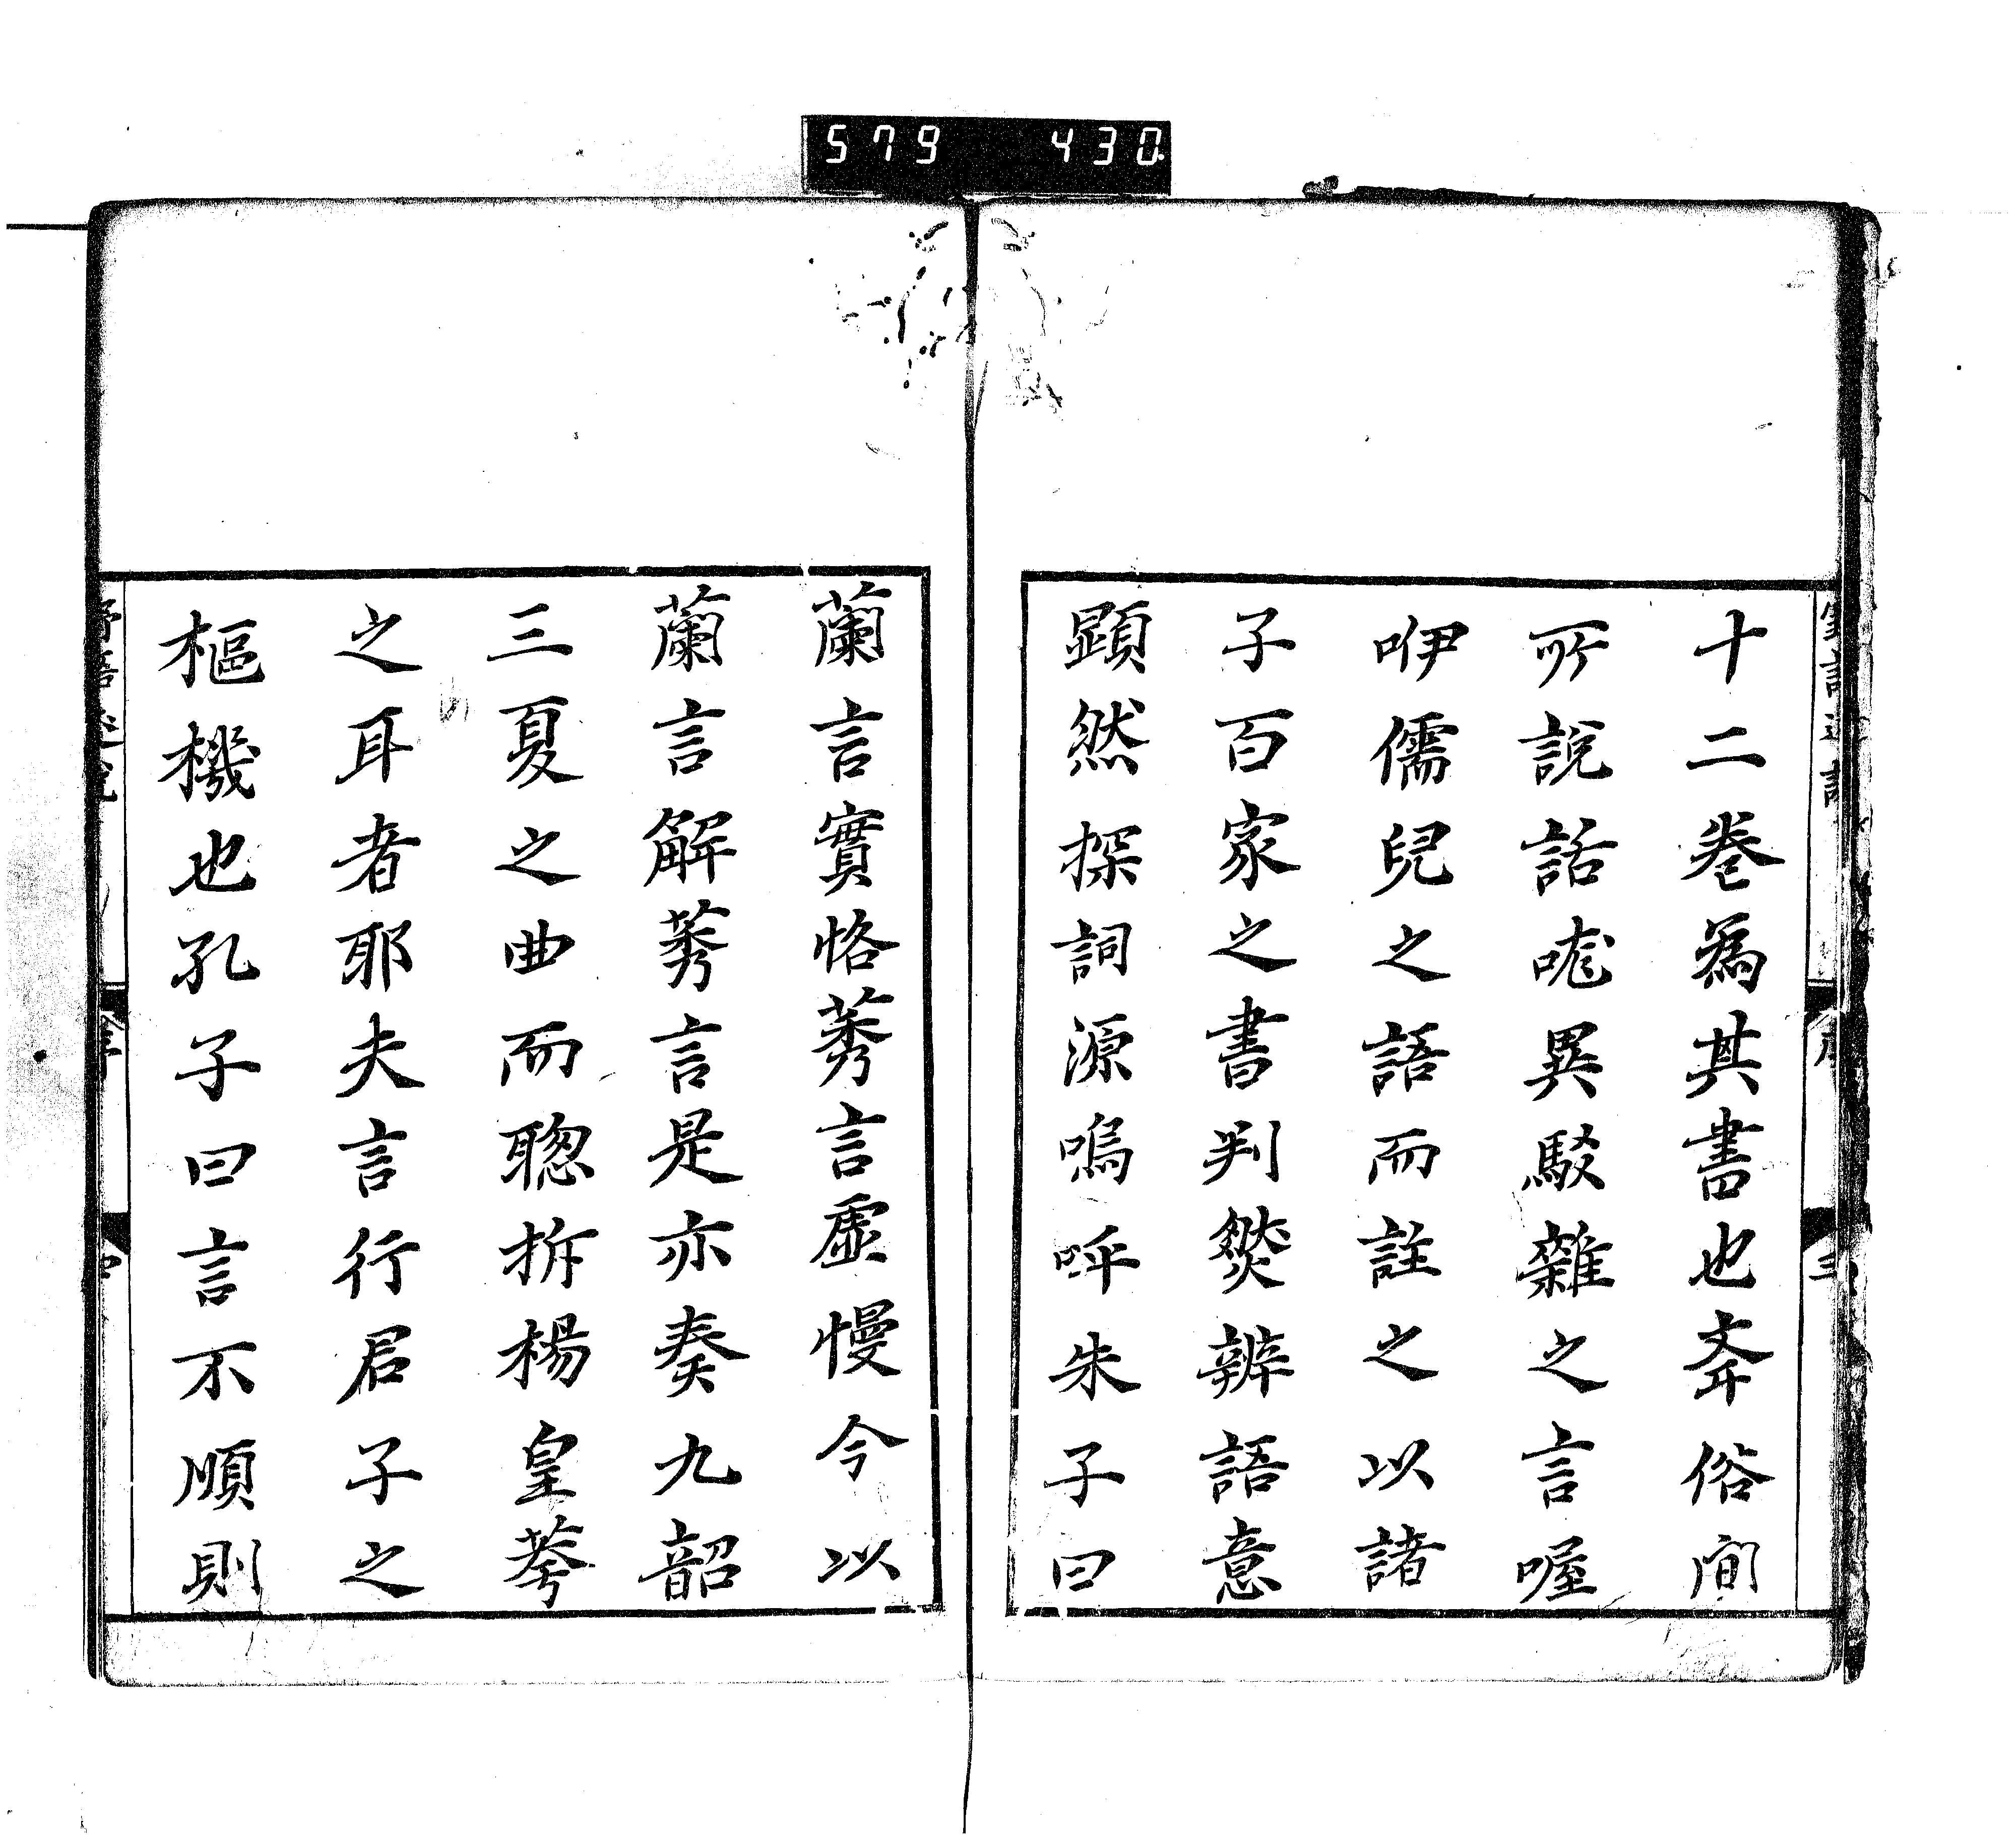 579 430
十二巻為其書也斊俗間
所說話哤異駁雜之言喔
咿儒兒之語而註之以諸
子百家之書判燓辨語意
顕然探詞源嗚呼朱子曰
蘭言實恪莠言虛慢今以
蘭言解莠言是亦奏九韶
三夏之曲而聰拆楊皇荂
之耳者耶夫言行君子之
樞機也孔子曰言不順則